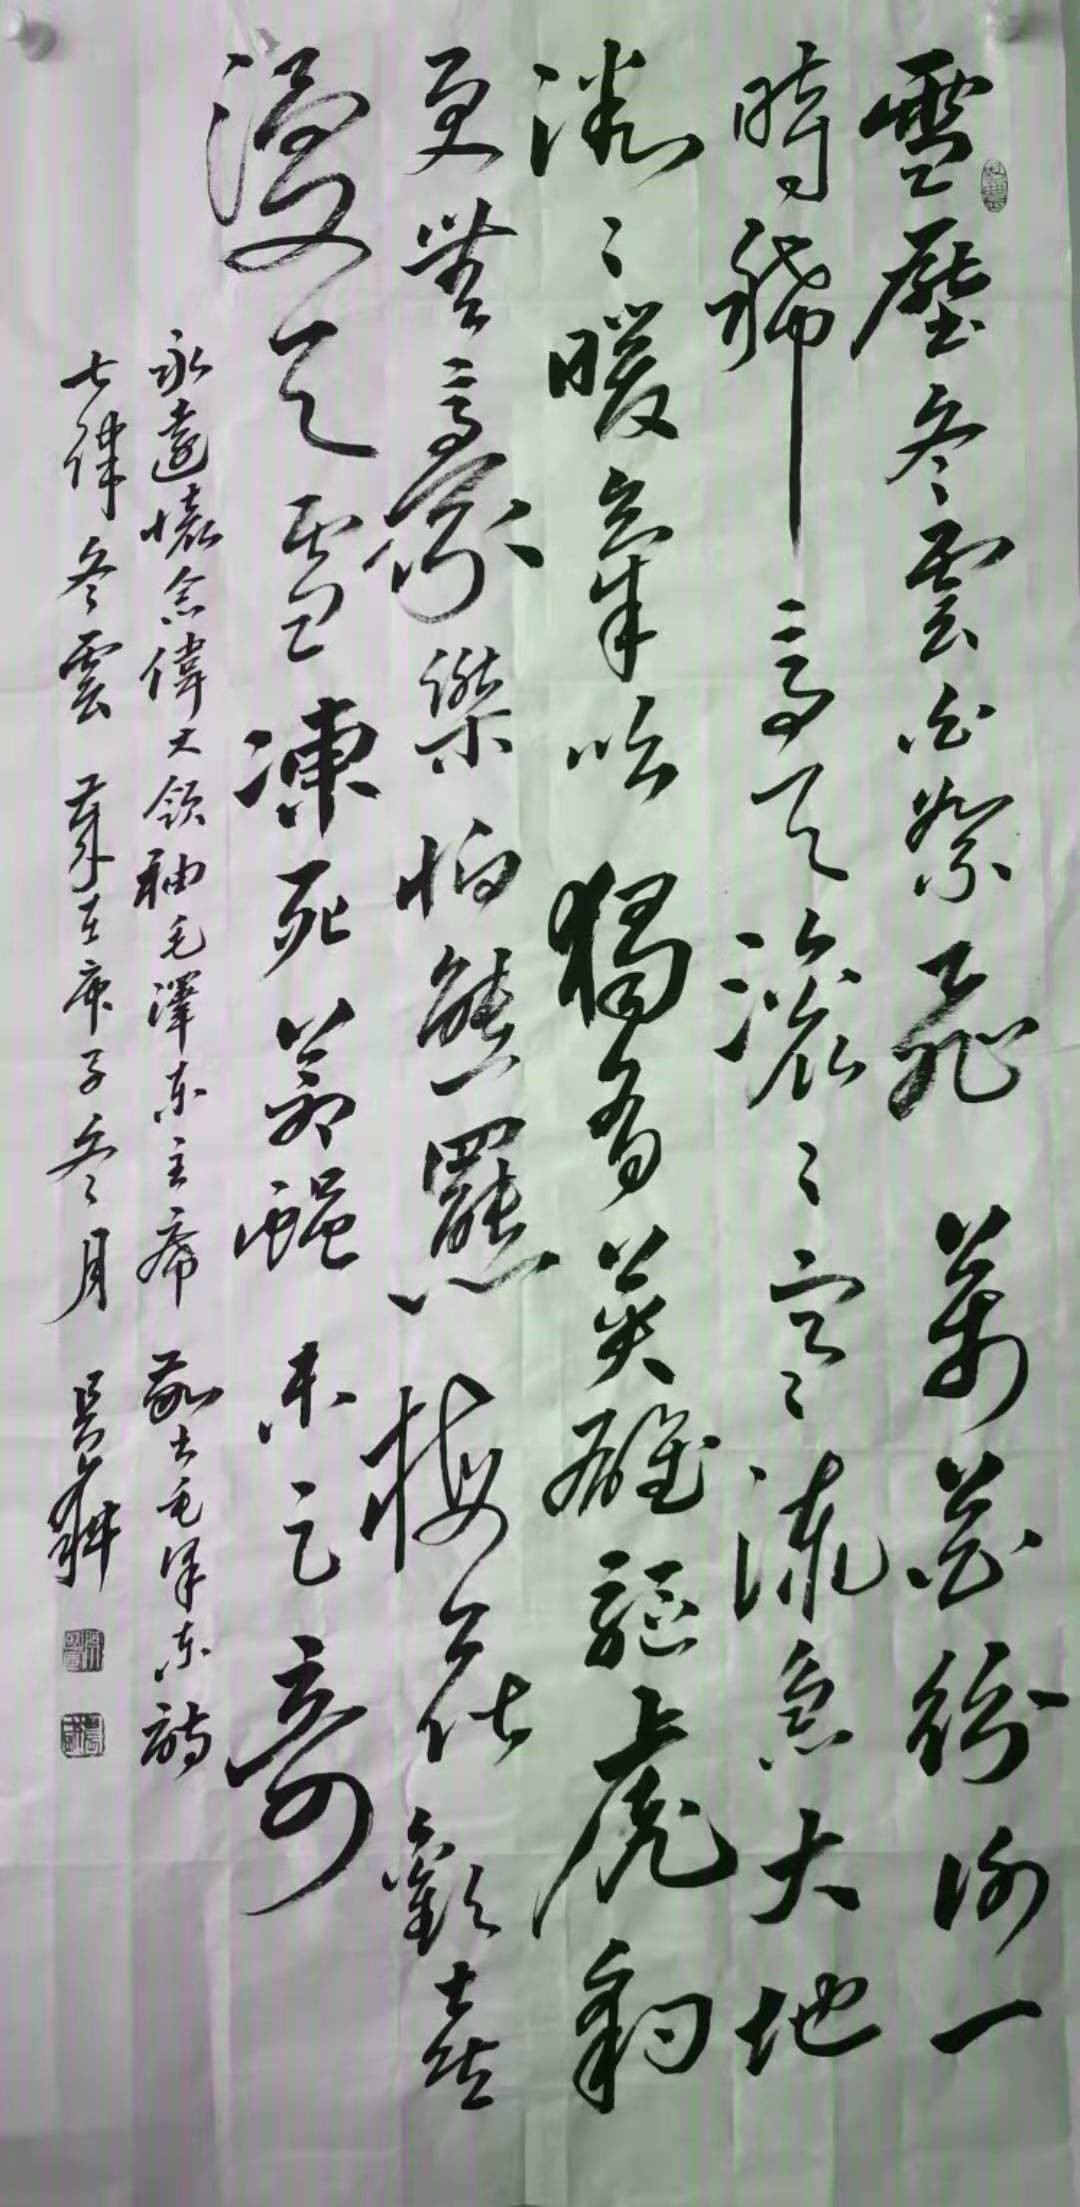 雪壓冬雲白絮飛 萬花紛謝一
時稀 高天滾〻寒流急 大地
微〻暖氣吹 獨有英雄驅虎豹
更無豪傑怕熊羆 梅花歡喜
漫天雪 凍死蒼蠅未足奇
永遠懷念偉大領袖毛澤東主席 敬書毛澤東詩
七律 冬雲 歲在庚子冬月